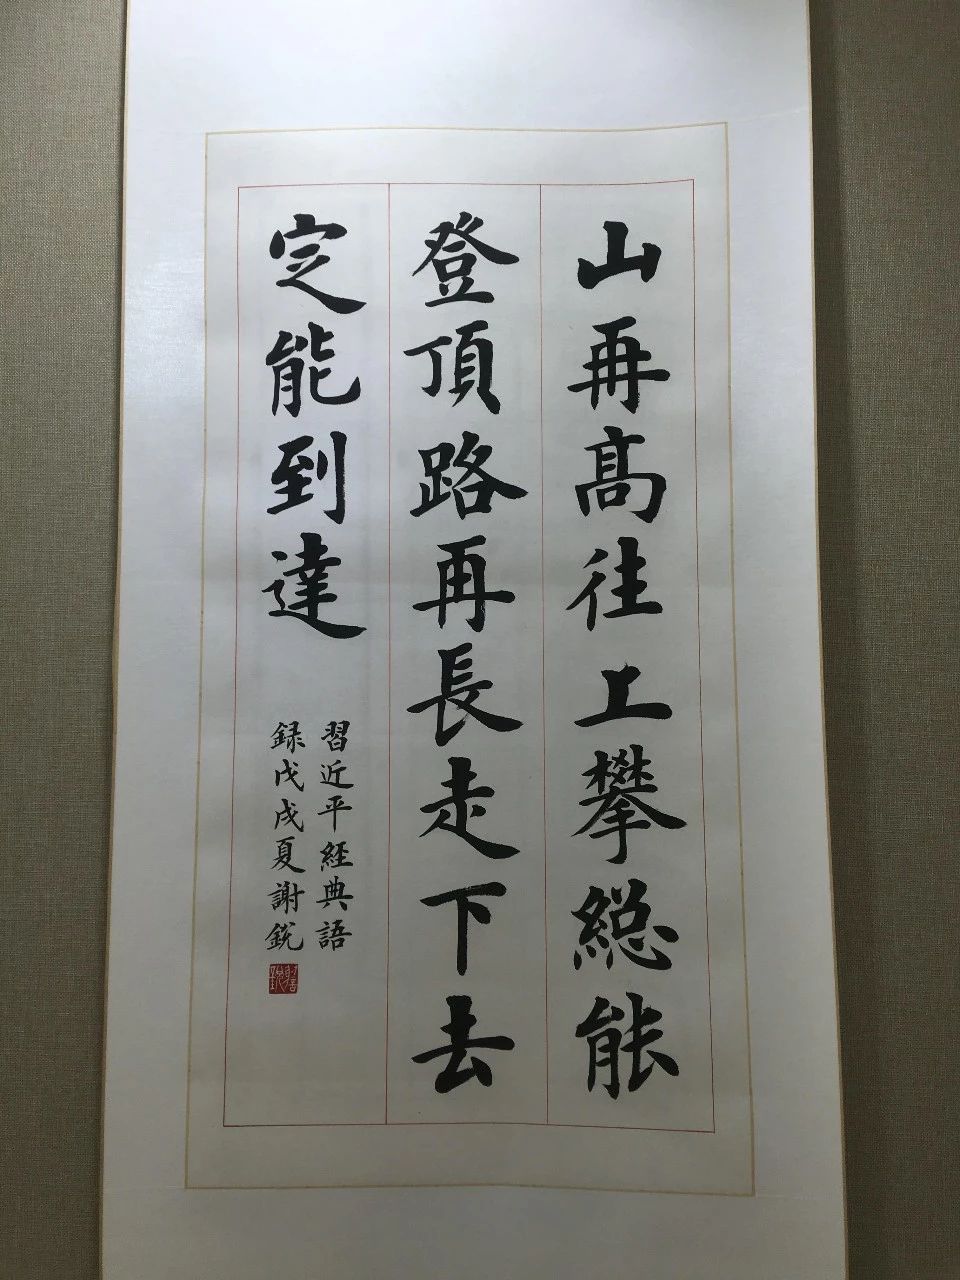 山再高往上攀総能
登頂路再長走下去
定能到達
習近平經典語
録戊戌夏謝銳